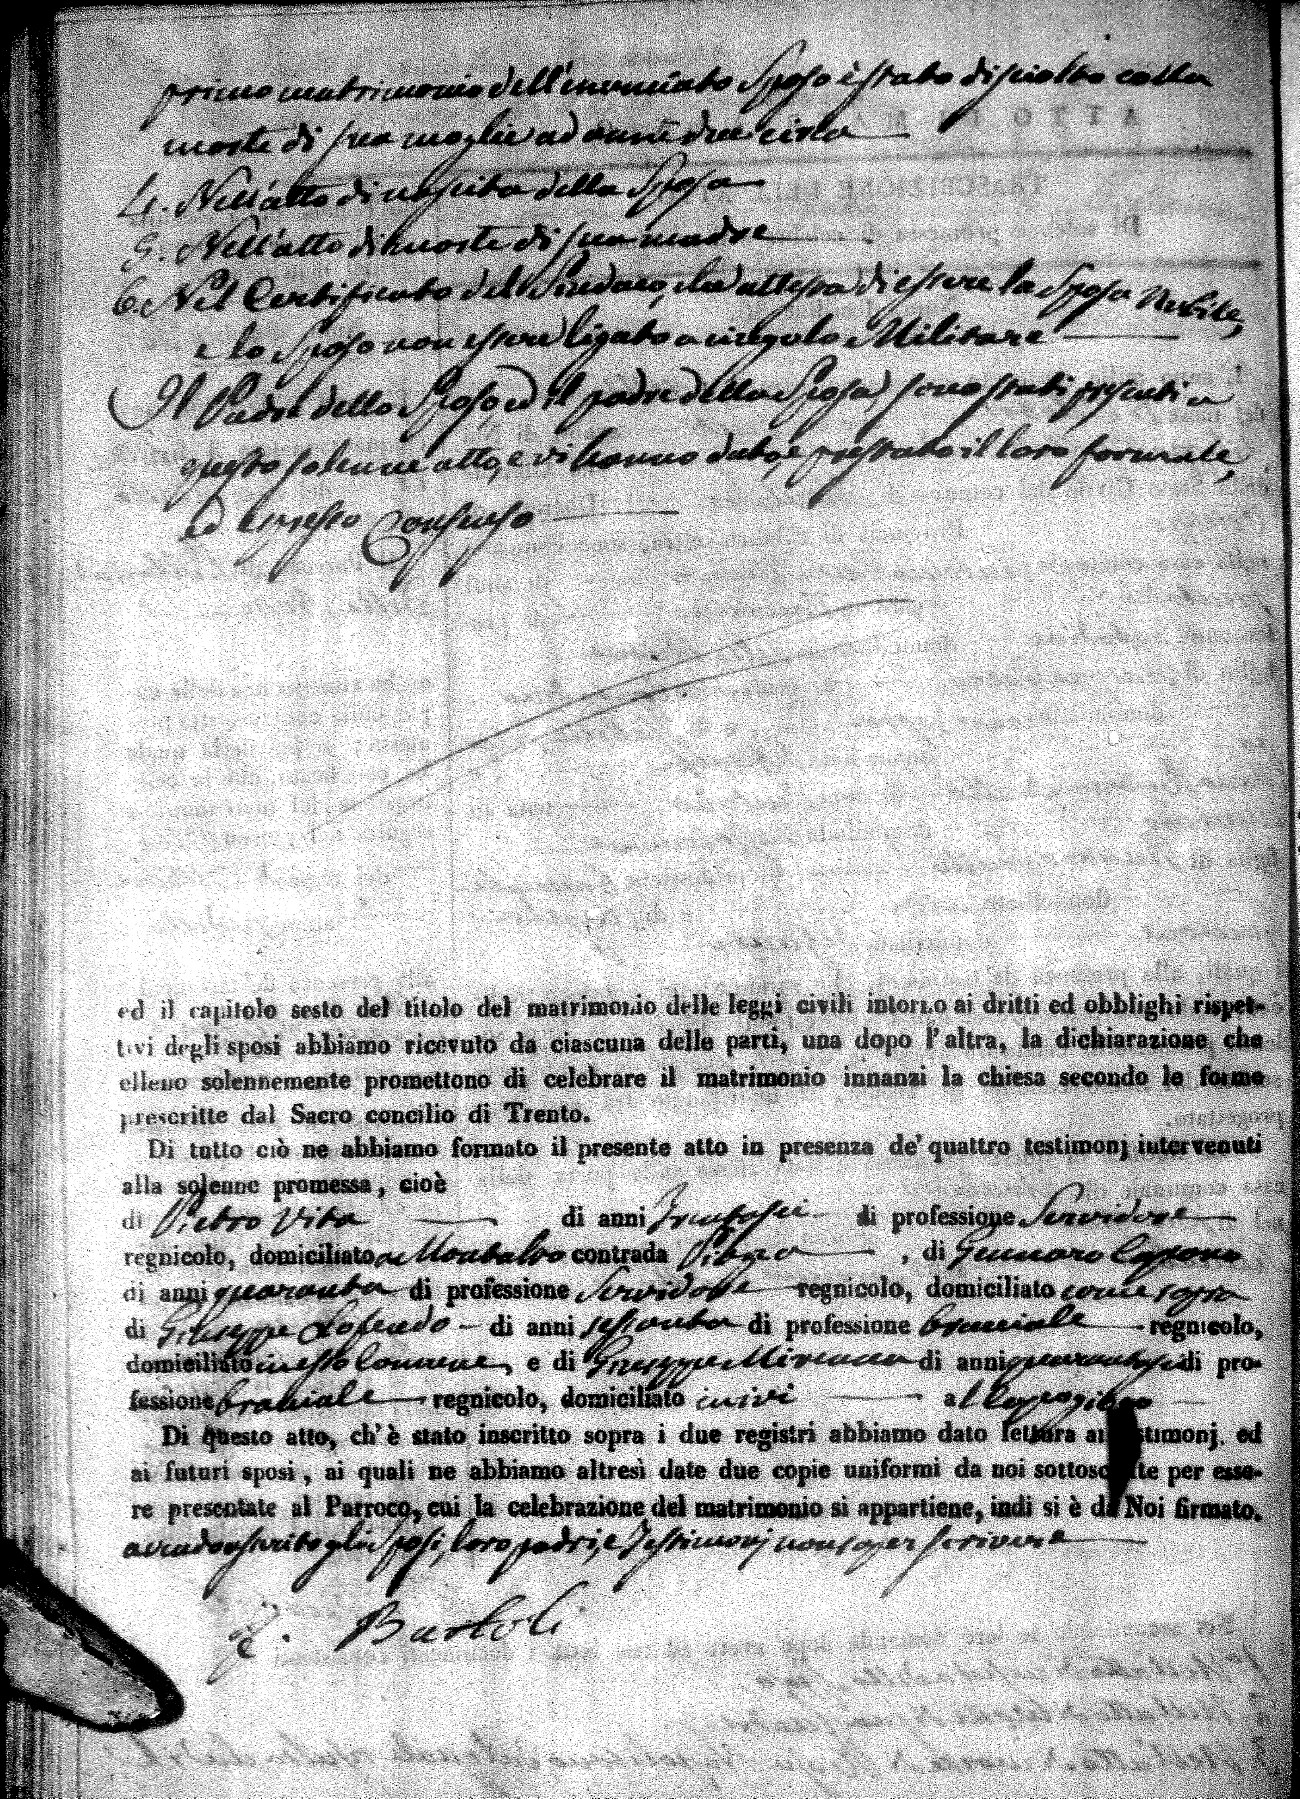 primo matrimonio dell'enunciato Sposo è stato disciolto colla
morte di sua moglie ad anni due circa
4. Nell'atto di nascita della Sposa
5. Nell'atto di morte di sua madre
6. Nel Certificato del Sindaco, che attesta di essere la Sposa Nubile,
e lo Sposo non essere ligato a vincolo Militare
Il Padre dello Sposo, ed il padre della Sposa, sono stati presenti a
questo solenne atto, e vi hanno dato, e prestato il loro formale,
ed espresso Consenso
ed il capitolo sesto del titolo del matrimonio delle leggi civili intorno ai dritti ed obblighi rispet-
tivi degli sposi abbiamo ricevuto da ciascuna delle parti, una dopo l'altra, la dichiarazione che
elleno solennemente promettono di celebrare il matrimonio innanzi la chiesa secondo le forme
prescritte dal Sacro concilio di Trento.
Di tutto ciò ne abbiamo formato il presente atto in presenza de' quattro testimonj intervenuti
alla solenne promessa, cioè
di Pietro Vita di anni Trentasei di professione Servidore
regnicolo, domiciliato a Montalto contrada , di Gennaro
di anni quaranta di professione Servidore regnicolo, domiciliato come sopra
di Giuseppe di anni sessanta di professione braciale regnicolo,
domiciliato in esto Comune, e di Giuseppe di anni quarantasei di pro-
fessione braciale regnicolo, domiciliato ivi
Di questo atto, ch'è stato inscritto sopra i due registri abbiamo dato lettura ai testimonj. ed
ai futuri sposi, ai quali ne abbiamo altresì date due copie uniformi da noi sottoscritte per esse-
re presentate al Parroco, cui la celebrazione del matrimonio si appartiene, indi si è da Noi firmato.
avendo asserito gli Sposi, loro padri, e Testimonj non saper scrivere
Bartoli